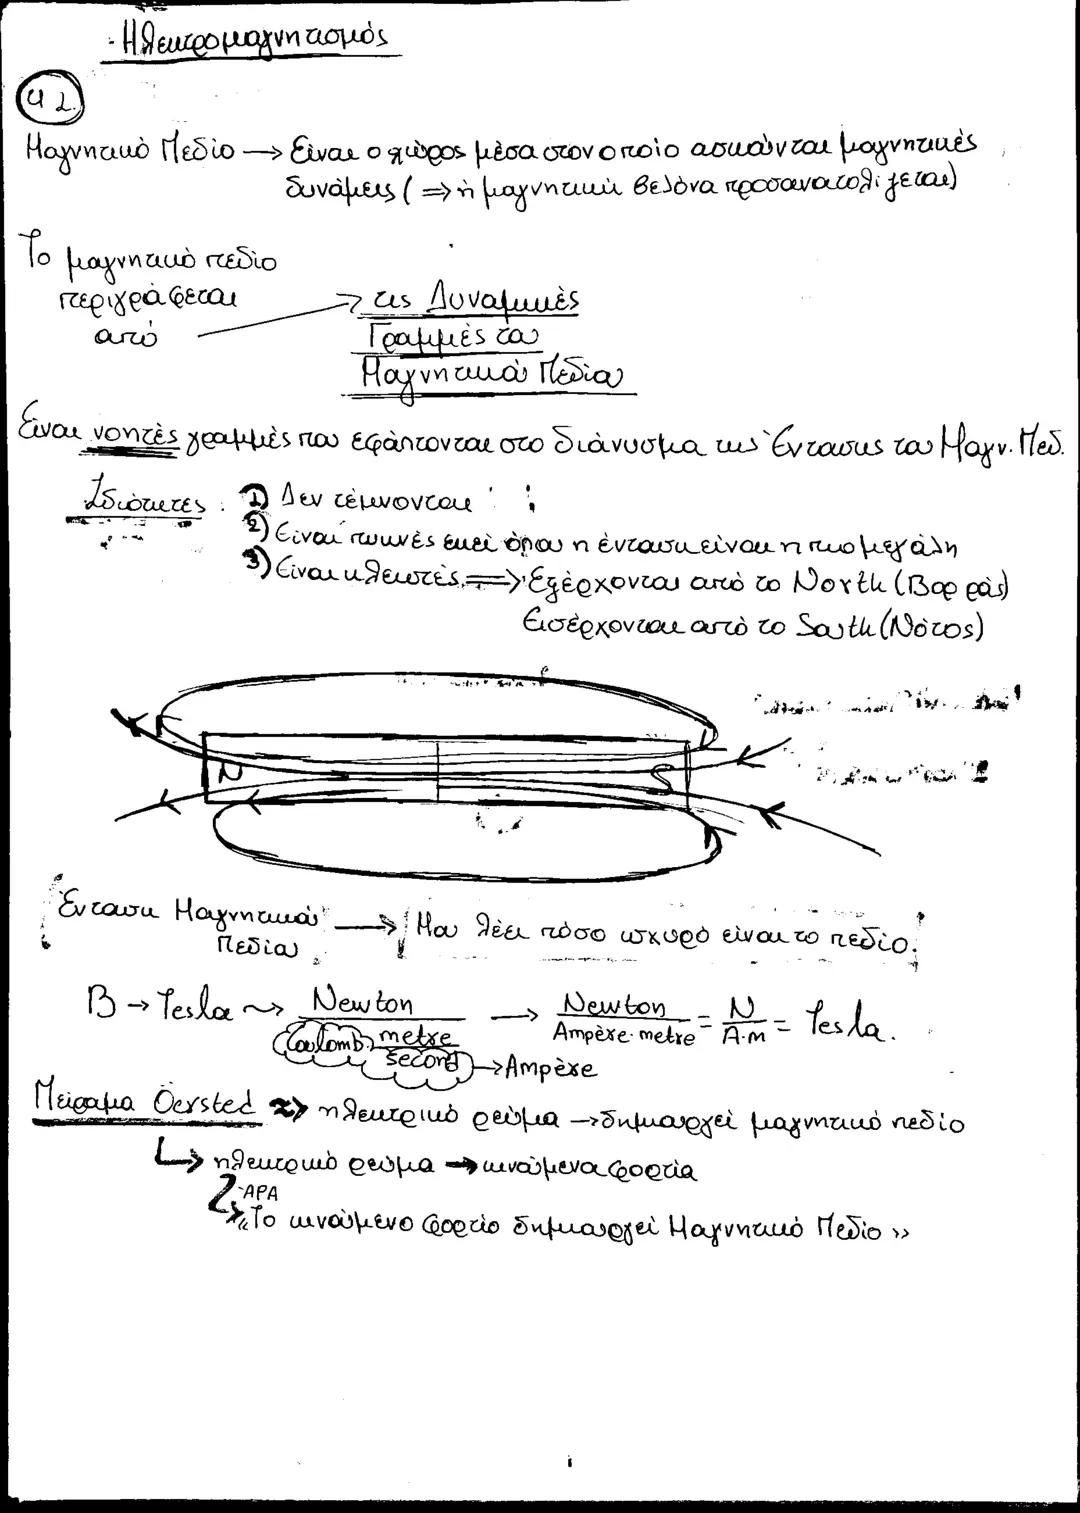 · Ηλεκτρομαγνητισμός
4.1
Μαγνητικό Πεδίο → Είναι ο χώρος μέσα στον οποίο ασκούνται μαγνητικές
δυνάμεις (⇒ ή μαγνητική βελόνα προσανατολίζεται)
Το μαγνητικό πεδίο
περιγράφεται
από
→ τις Δυναμικές
Γραμμές του
Μαγνητικού Πεδίου
Είναι νοητές γραμμές που εφάπτονται στο διάνυσμα της Έντασης του Μαγν. Πεδ.
Ιδιότητες : 1) Δεν τέμνονται
2) Είναι πυκνές εκεί όπου η ένταση είναι η πιο μεγάλη
3) Είναι κλειστές ⇒ Εξέρχονται από το North (Βορράς)
Εισέρχονται από το South (Νότος)
N S
Ένταση Μαγνητικού → Μου λέει πόσο ισχυρό είναι το πεδίο.
Πεδίου
B → Tesla ⇝ Newton / Coulomb · metre / second → Newton / Ampère · metre = N / A·m = Tesla.
→ Ampère
Πείραμα Oersted ⇝ ηλεκτρικό ρεύμα → δημιουργεί μαγνητικό πεδίο
↳ ηλεκτρικό ρεύμα → κινούμενα φορτία
ΑΡΑ
«Το κινούμενο φορτίο δημιουργεί Μαγνητικό Πεδίο»